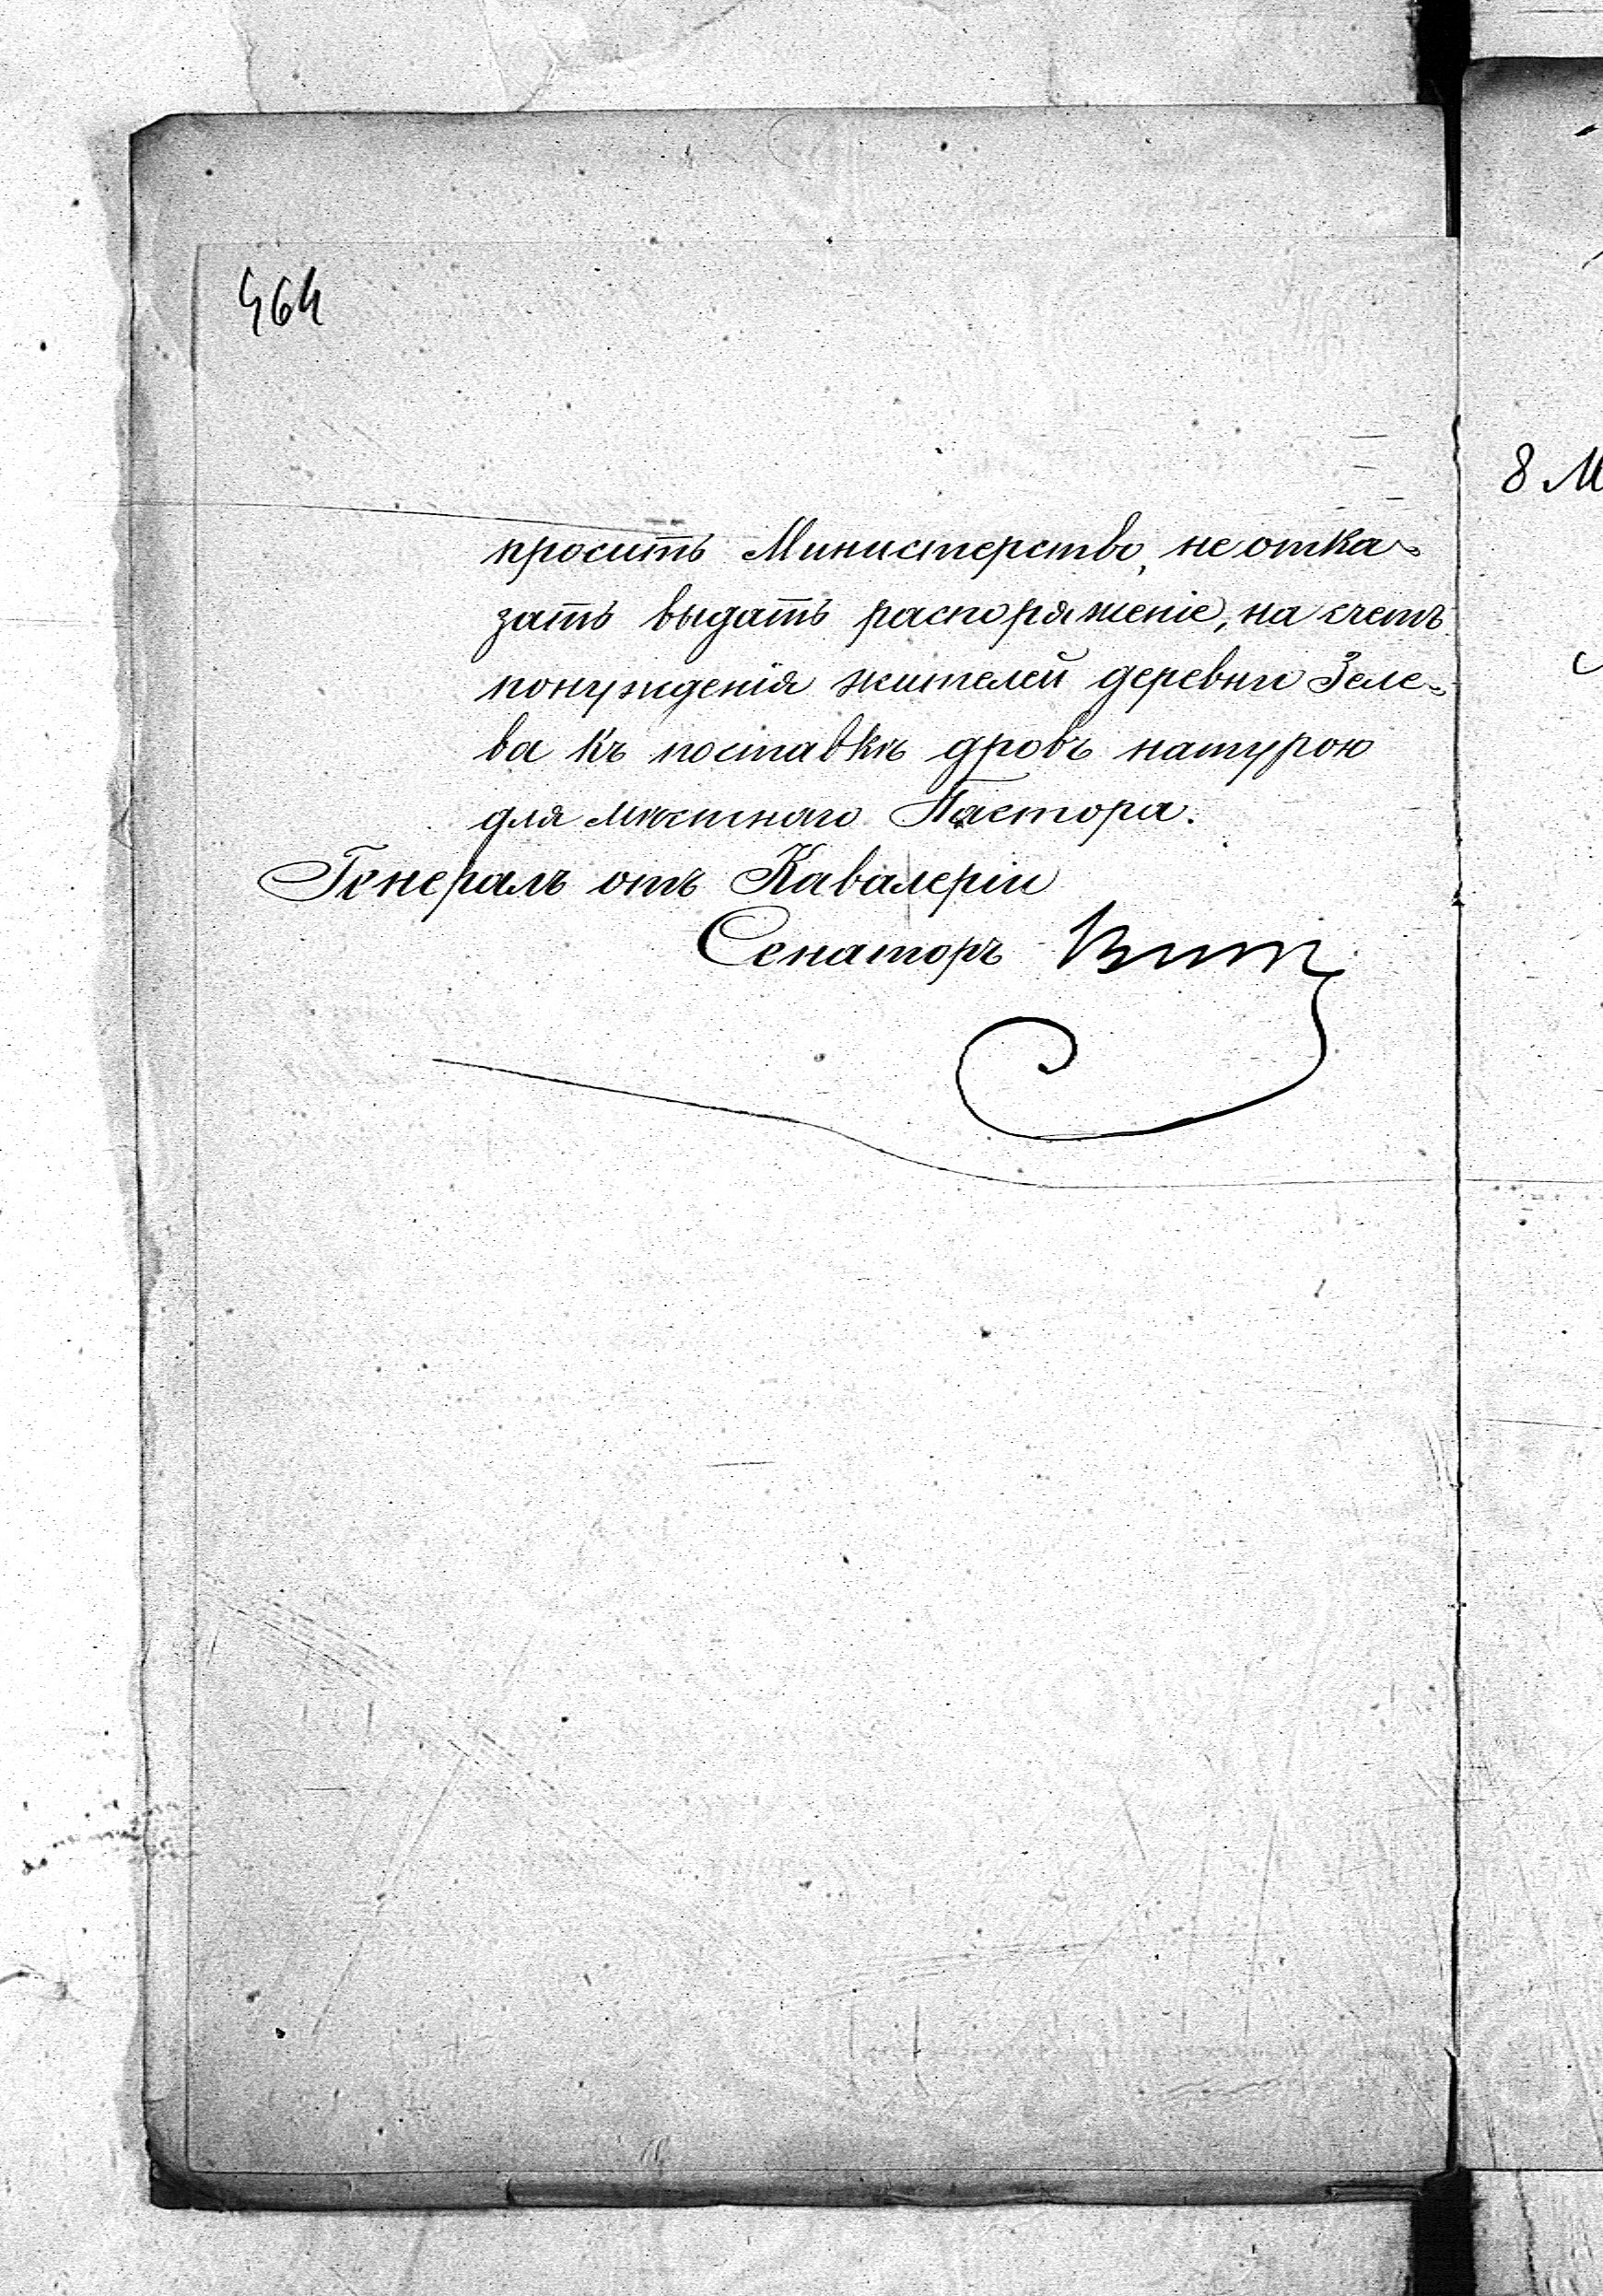 464
просить Министерство, не отка-
зать выдать распоряженіе, на счетъ
понужденія жителей деревни Зеле-
ва къ поставкѣ дровъ натурою
для мѣстнаго Пастора.
Генералъ отъ Кавалеріи
Сенаторъ Витт
8 М